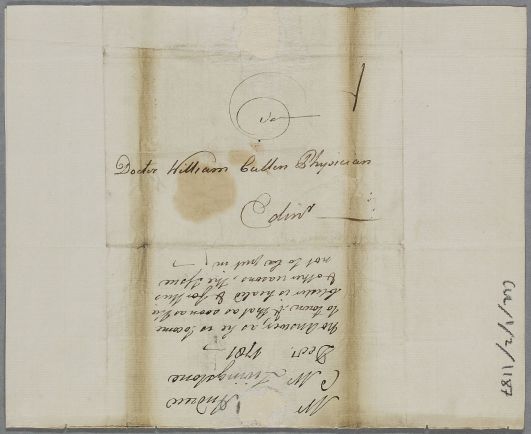 To
Doctor William Cullen Physician
Edinr
Mr Andrew
C Mr Livingstone
Decr. 1781
No Answer, as he is to come
to town, & that as soon as the
blister is healed & for this
& other reasons, the Issue
not to be put in
CUL/1/2/1187